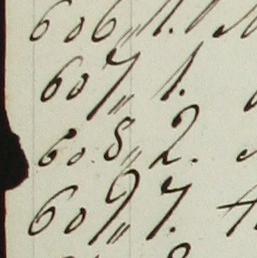 606„ 1.
607„ 1.
608„ 2.
609„ 7.